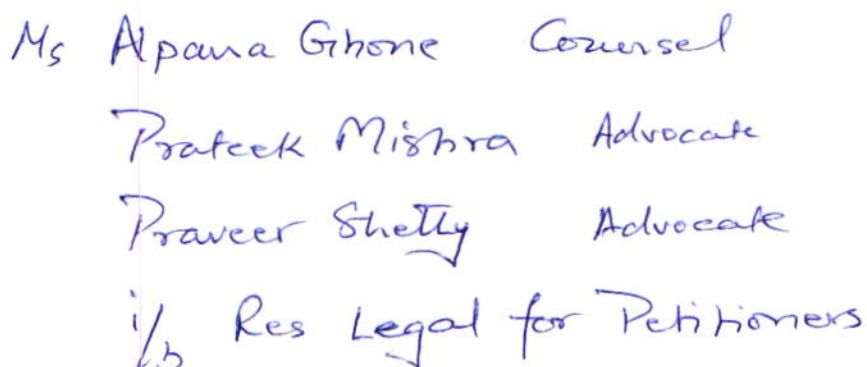 Ms Alpana Ghone Counsel
Prateek Mishra Advocate
Praveer Shetty Advocate
i/b Res Legal for Petitioners